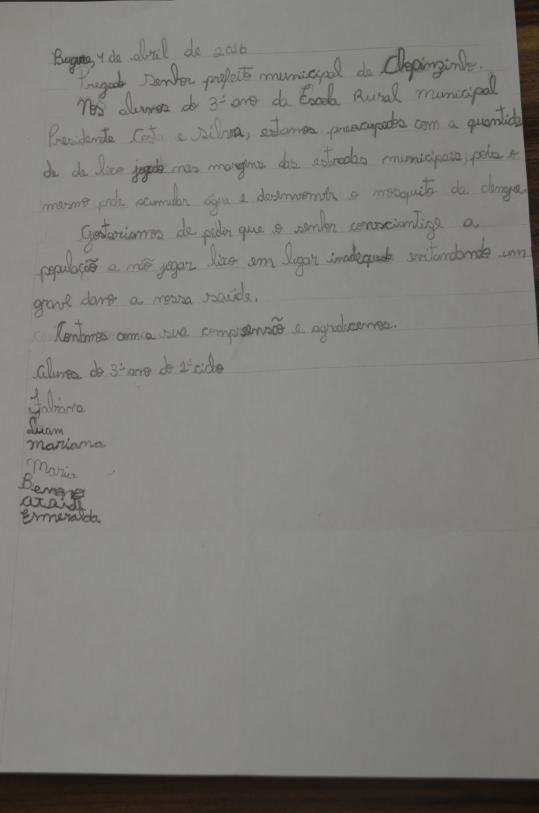 Bugre, 4 de abril de 2016
Prezado senhor prefeito municipal de Chopinzinho.
Nós alunos do 3º ano da Escola Rural Municipal
Presidente Costa e Silva, estamos preocupados com a quantida
de de lixo jogado nas margens das estradas municipais, pois o
mesmo pode acumular água e desenvolver o mosquito da dengue.
Gostariamos de pedir que o senhor conscientize a
população a não jogar lixo em lugar inadequado um
grave dano a nossa saúde.
Contamos com a sua compreensão e agradecemos.
Alunos do 3º ano do 1º ciclo
Fabiana
Luam
mariana
Maria
Esmeralda